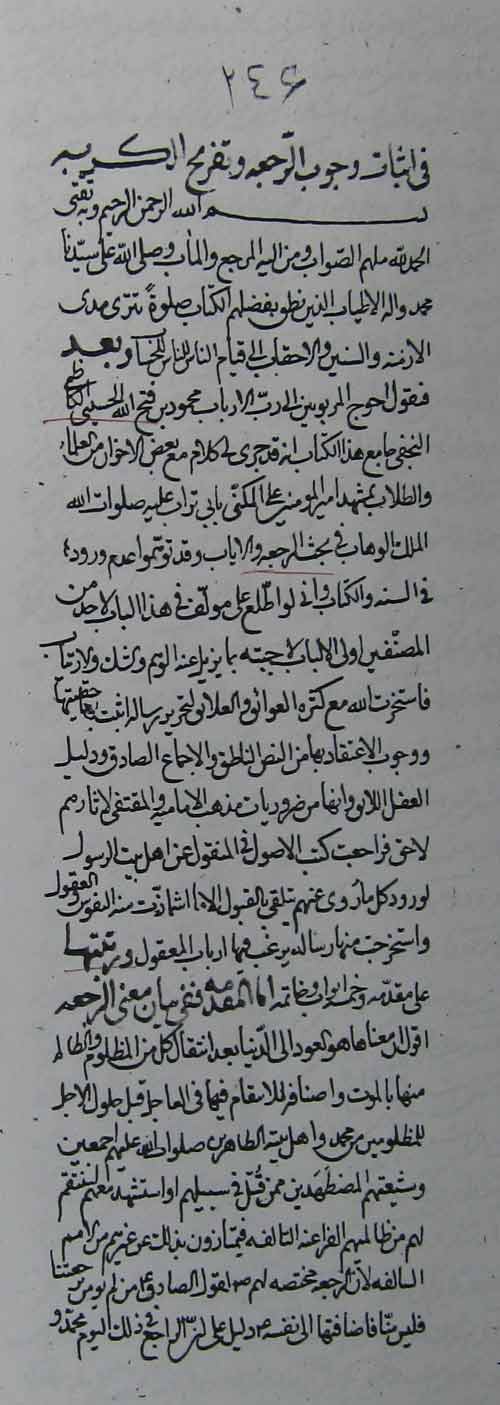 ٢٤٦
في اثبات وجوب الرّجعه وتفريج الكربه
بسم الله الرحمن الرحيم وبه ثقتي
الحمد لله ملهم الصّواب ومن اليه المرجع والمأب وصلى الله على سيّدنا
محمد واله الاطياب الذين نطق بفضلهم الكتاب صلوةً تترى مدى
الازمنه والسنين والاحقاب الى قيام الناس للحساب وبعد
فيقول احوج المربوبين الى ربّ الارباب محمود بن فتح الله الحسيني الكاظمي
النجفي جامع هذا الكتاب انه قد جرى لي كلام مع بعض الاخوان من العلماء
والطلاب بمشهد امير المومنين علي المكنّى بابي تراب عليه صلوات الله
الملك الوهاب في بحث الرجعه والاياب وقد توهّموا عدم ورودها
في السنه والكتاب واني لو اطّلع على مولّف في هذا الباب لاحد من
المصنّفين اولي الالباب لاجبته بما يزيل عنه الوهم والشك والارتياب
فاستخرت الله مع كثرة العوائق والعلائق لتحرير رساله اثبت بها حقيتها
ووجوب الاعتقاد بها من النص الناطق والاجماع الصادق ودليل
العقل اللائق وانها من ضروريات مذهب الاماميه والمقتفي لاثارهم
لاحق فراجعت كتب الاصول في المنقول عن اهل بيت الرسول
لورود كل ما روى عنهم تلقى بالقبول الا ما اشمأزت منه النفوس والعقول
واستخرجت منها رساله يرغب فيها ارباب المعقول ورتبتها
على مقدمه وخمسة ابواب وخاتمه اما المقدمه ففي بيان معنى الرجعه
اقول ان معناها هو العود الى الدنيا بعد انتقال كل من المظلوم والظالم
منها بالموت واصنافه للانتقام فيها في العاجل قبل حلول الاجل
للمظلومين من محمد واهل بيته الطاهرين صلوات الله عليهم اجمعين
وشيعتهم المضطَهَدين ممن قُتل في سبيلهم او استشهد معهم لينتقم
لهم من ظالمهم الفراعنه التالفه فيمتازون بذلك عن غيرهم من الامم
السالفه لان الرجعه مختصه لهم لقول الصادق ع من لم يومن برجعتنا
فليس منّا فاضافتها الى نفسه دليل على ان الراجع في ذلك اليوم محمد و